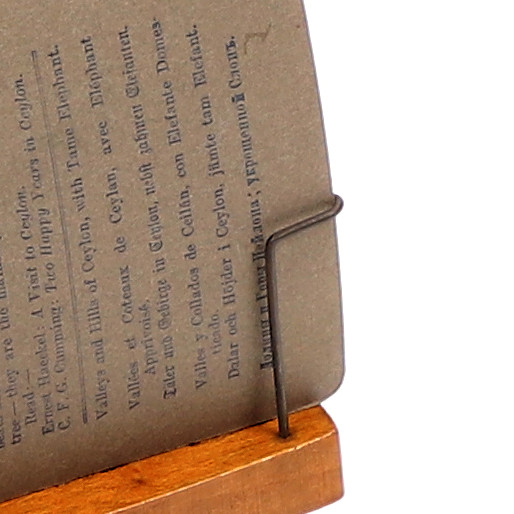 tree—they are the
Read:—
Ernest Haeckel: A Visit to Ceylon.
C. F. G. Cumming: Two Happy Years in Ceylon.
Valleys and Hills of Ceylon, with Tame Elephant.
Vallées et Coteaux de Ceylan, avec Eléphant
Apprivoisé.
Täler und Gebirge in Ceylon, nebst zahmen Elefanten.
Valles y Collados de Ceilán, con Elefante Domes-
ticado.
Dalar och Höjder i Ceylon, jämte tam Elefant.
Долины и Горы Цейлона; укрощенной Слонъ.